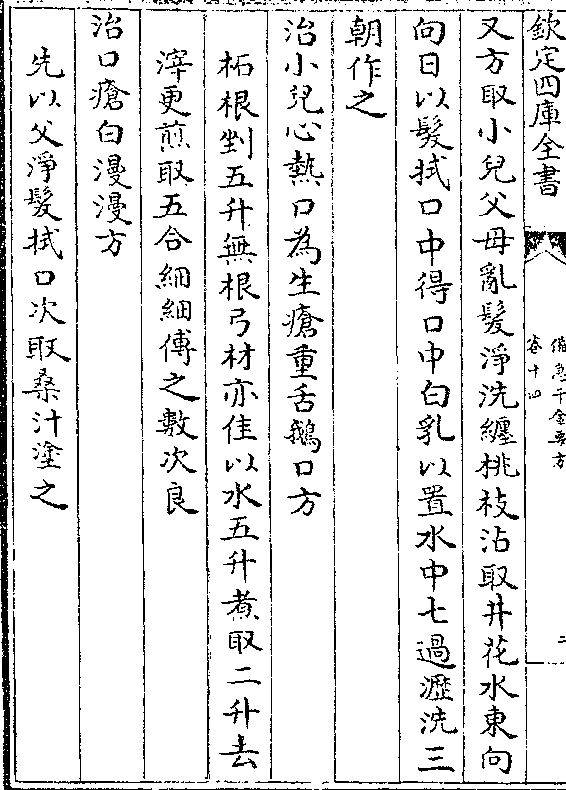 欽定四庫全書
備急千金要方
卷十四
二
又方取小兒父母亂髮淨洗纏桃枝沾取井花水東向
向日以髮拭口中得口中白乳以置水中七過瀝洗三
朝作之
治小兒心熱口為生瘡重舌鵝口方
柘根剉五升無根弓材亦佳以水五升煮取二升去
滓更煎取五合細細傅之數次良
治口瘡白漫漫方
先以父淨髮拭口次取桑汁塗之